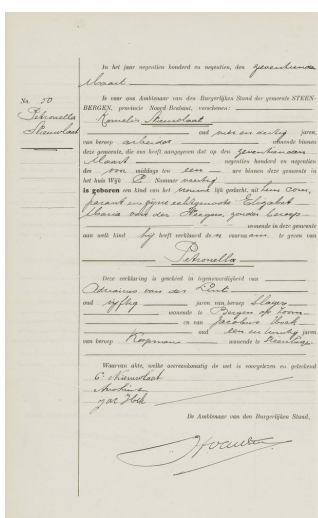 In het jaar negentien honderd en negentien, den zeventienden
Maart
is voor ons Ambtenaar van den Burgerlijken Stand der gemeente STEEN-
No. 50
BERGEN, provincie Noord-Brabant, verschenen:
Petronella
Nieuwlaat
Kornelis Nieuwlaat
oud vier en dertig jaren,
van beroep arbeider wonende binnen
deze gemeente, die ons heeft aangegeven dat op den zeventienden
Maart negentien honderd en negentien
des voor middags ten een ure binnen deze gemeente in
het huis Wijk Nummer
is geboren een kind van het vrouwelijk geslacht, uit hem com-
parant en zijne echtgenoote Elizabet
Maria van der zonder beroep
wonende in deze gemeente
aan welk kind hij heeft verklaard de voornaam te geven van
Petronella
Deze verklaring is geschied in tegenwoordigheid van
Adrianus van der
oud vijftig jaren van beroep Slager
wonende te Bergen op Zoom
en van Jacobus Hoek
oud een en jaren
van beroep Koopman wonende te Steenbergen
Waarvan akte, welke overeenkomstig de wet is voorgelezen en geteekend
C. Nieuwlaat
Jac Hoek
De Ambtenaar van den Burgerlijken Stand,